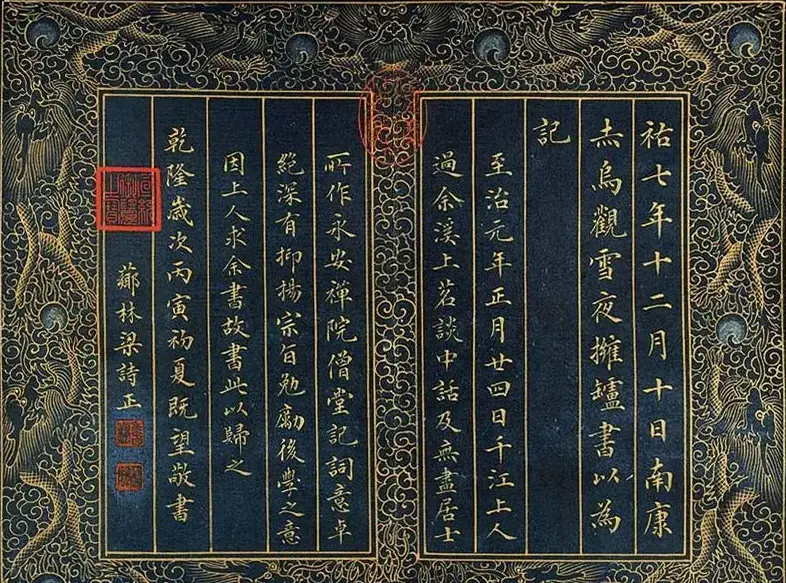 祐七年十二月十日南康
赤烏觀雪夜擁罏書以為
記
至治元年正月廿四日千江上人
過余溪上茗談中話及無盡居士
所作永安禪院僧堂記詞意卓
絕深有抑揚宗旨勉勵後學之意
因上人求余書故書此以歸之
乾隆歲次丙寅初夏既望敬書
薌林梁詩正